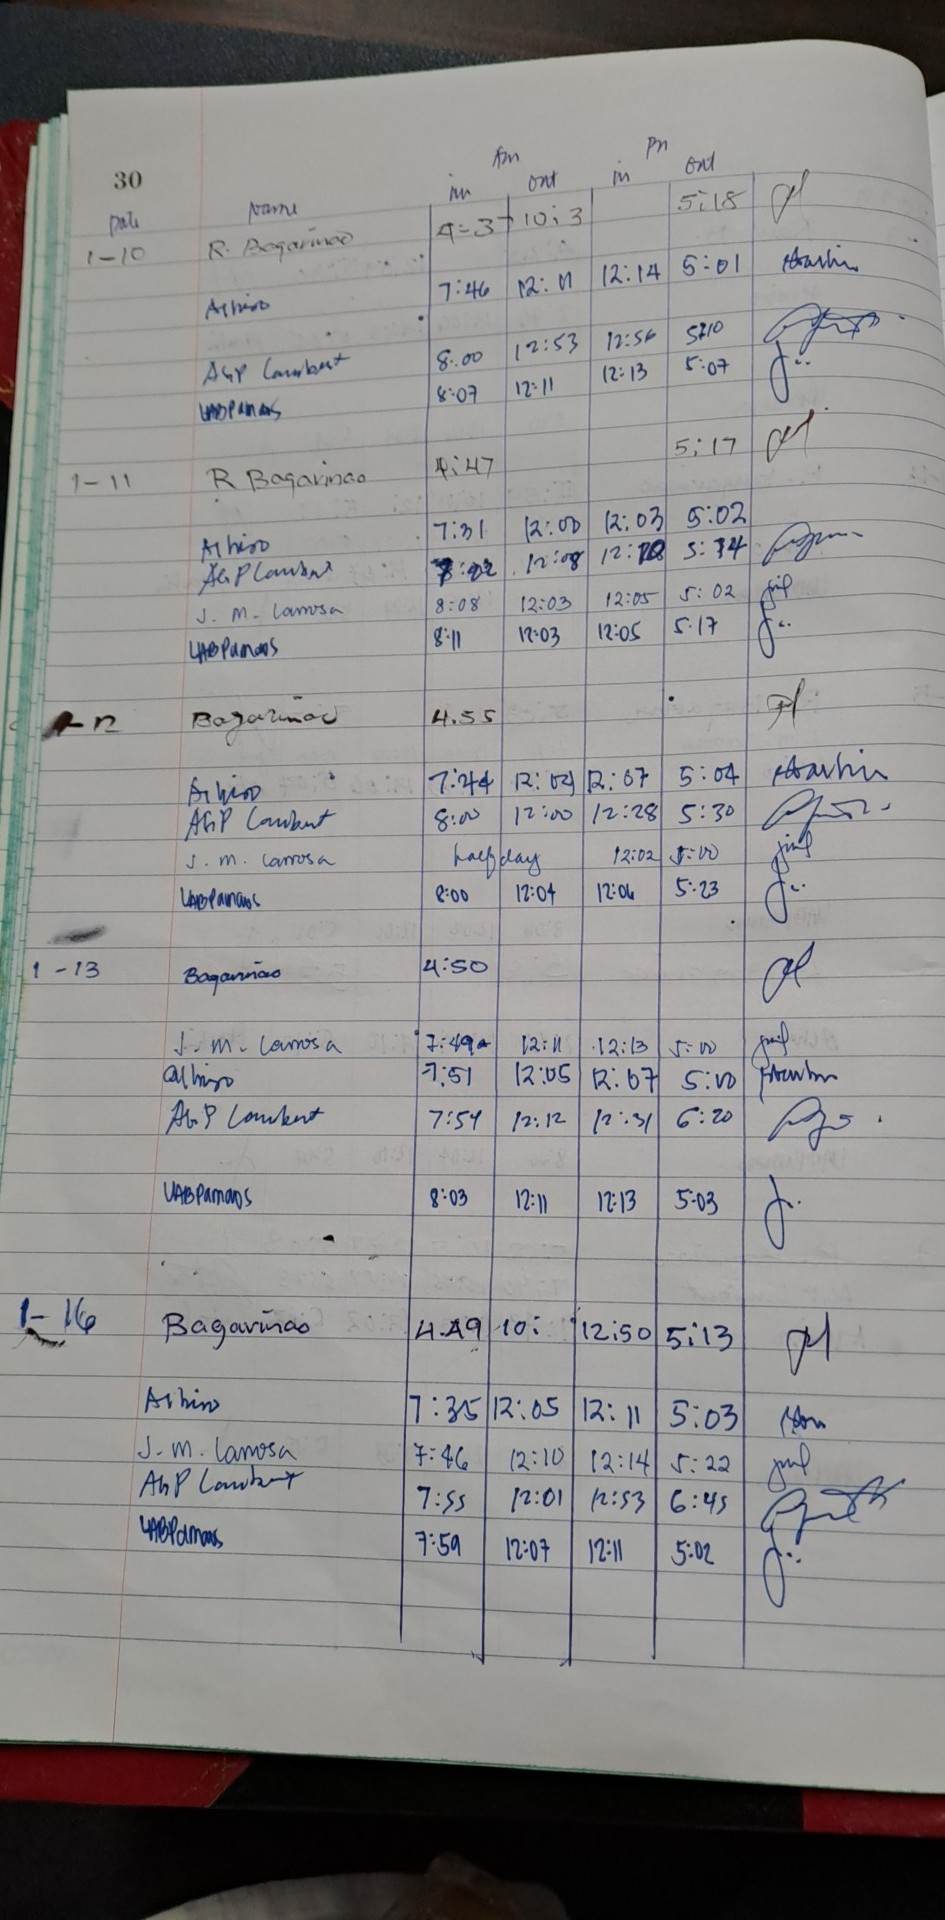 30
Am Pm
in out in out
Date Name
1-10 R. Bagarinao 10:3 5:18
7:46 12:11 12:14 5:01
AGP Lambert 8:00 12:53 12:56 5:10
UABPamaos 8:07 12:11 12:13 5:07
1-11 R Bagarinao 4:47 5:17
7:31 12:00 12:03 5:02
AGP Lambert 12:08 5:34
J. M. Larrosa 8:08 12:03 12:05 5:02
UABPamaos 8:11 12:03 12:05 5:17
1-12 Bagarinao 4.55
7:44 12:04 12:07 5:04
AGP Lambert 8:00 12:00 12:28 5:30
J. M. Larrosa half day 12:02 5:00
UABPamaos 8:00 12:04 12:06 5:23
1-13 Bagarinao 4:50
J. M. Larrosa 7:49 12:11 12:13 5:00
7:51 12:05 12:07 5:00
AGP Lambert 7:54 12:12 12:31 6:20
UABPamaos 8:03 12:11 12:13 5:03
1-16 Bagarinao 4.49 10: 12:50 5:13
7:35 12:05 12:11 5:03
J. M. Larrosa 7:46 12:10 12:14 5:22
AGP Lambert 7:55 12:01 12:53 6:45
UABPamaos 7:59 12:07 12:11 5:02